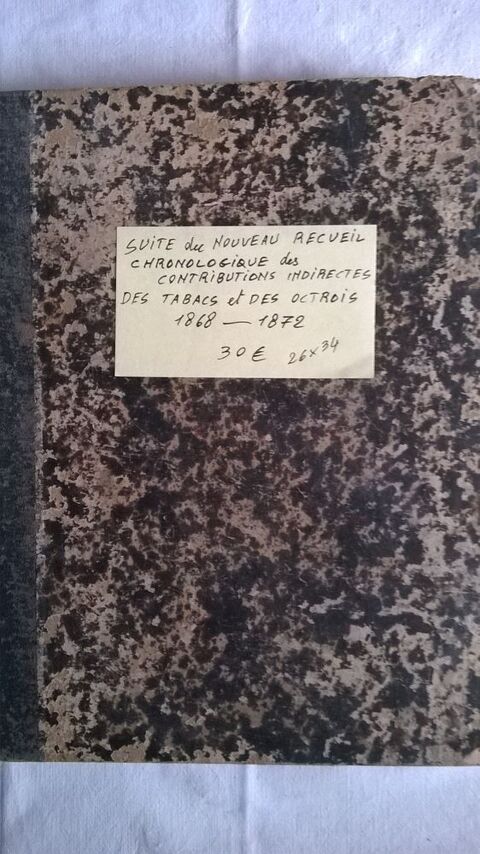 SUITE du NOUVEAU RECUEIL
CHRONOLOGIQUE des
CONTRIBUTIONS INDIRECTES
DES TABACS et DES OCTROIS
1868 — 1872
30 € 26 x 34